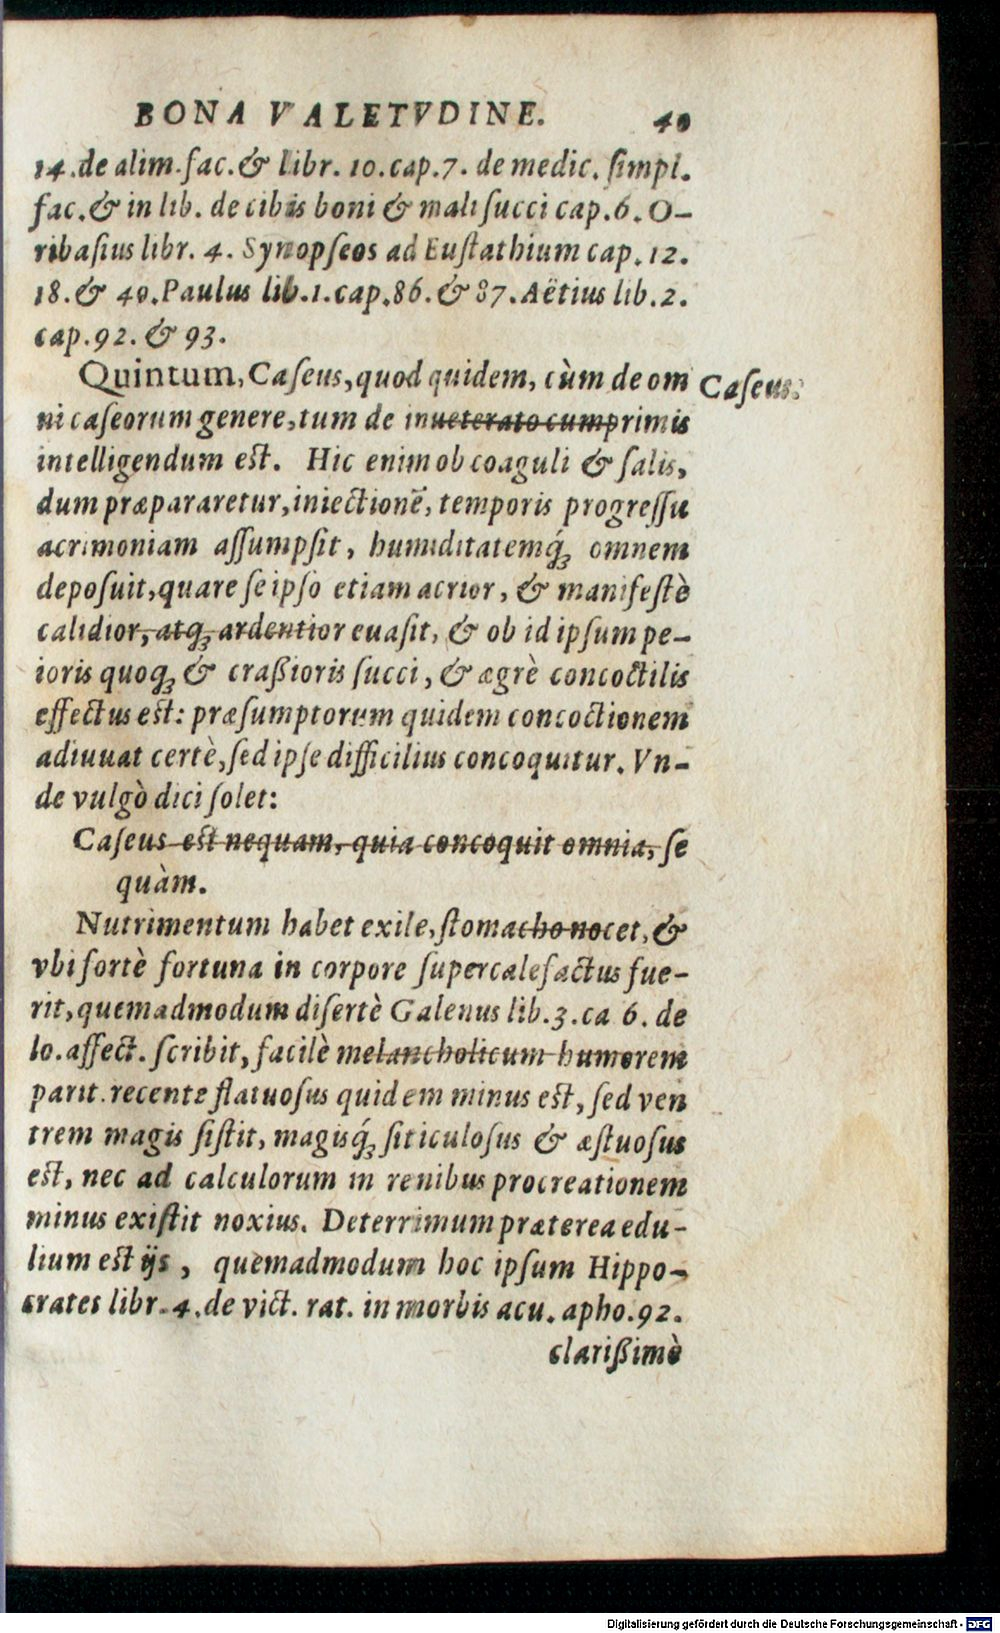 BONA VALETVDINE. 40
14. de alim. fac. & libr. 10. cap. 7. de medic. ſimpl.
fac. & in lib. de cibis boni & mali ſucci cap. 6. O-
ribaſius libr. 4. Synopſeos ad Euſtathium cap. 12.
18. & 40. Paulus lib. 1. cap. 86. & 87. Aëtius lib. 2.
cap. 92. & 93.
Quintum, Caſeus, quod quidem, cùm de om
Caſeus.
ni caſeorum genere, tum de inueterato cumprimis
intelligendum est. Hic enim ob coaguli & ſalis,
dum præpararetur, iniectionē, temporis progreſſu
acrimoniam aſſumpſit, humiditatemq́; omnem
depoſuit, quare ſe ipſo etiam acrior, & manifeſtè
calidior, atq; ardentior euaſit, & ob id ipſum pe-
ioris quoq; & craßioris ſucci, & ægrè concoctilis
effectus est: præſumptorum quidem concoctionem
adiuuat certè, ſed ipſe difficilius concoquitur. Vn-
de vulgò dici ſolet:
Caſeus est nequam, quia concoquit omnia, ſe
quàm.
Nutrimentum habet exile, ſtomacho nocet, &
vbi fortè fortuna in corpore ſupercalefactus fue-
rit, quemadmodum diſertè Galenus lib. 3. ca 6. de
lo. affect. ſcribit, facilè melancholicum humorem
parit. recente flatuoſus quidem minus est, ſed ven
trem magis ſiſtit, magisq́; ſiticuloſus & æſtuoſus
est, nec ad calculorum in renibus procreationem
minus exiſtit noxius. Deterrimum præterea edu-
lium est ijs, quemadmodum hoc ipſum Hippo-
crates libr. 4. de vict. rat. in morbis acu. apho. 92.
clarißimè
Digitalisierung gefördert durch die Deutsche Forschungsgemeinschaft - DFG